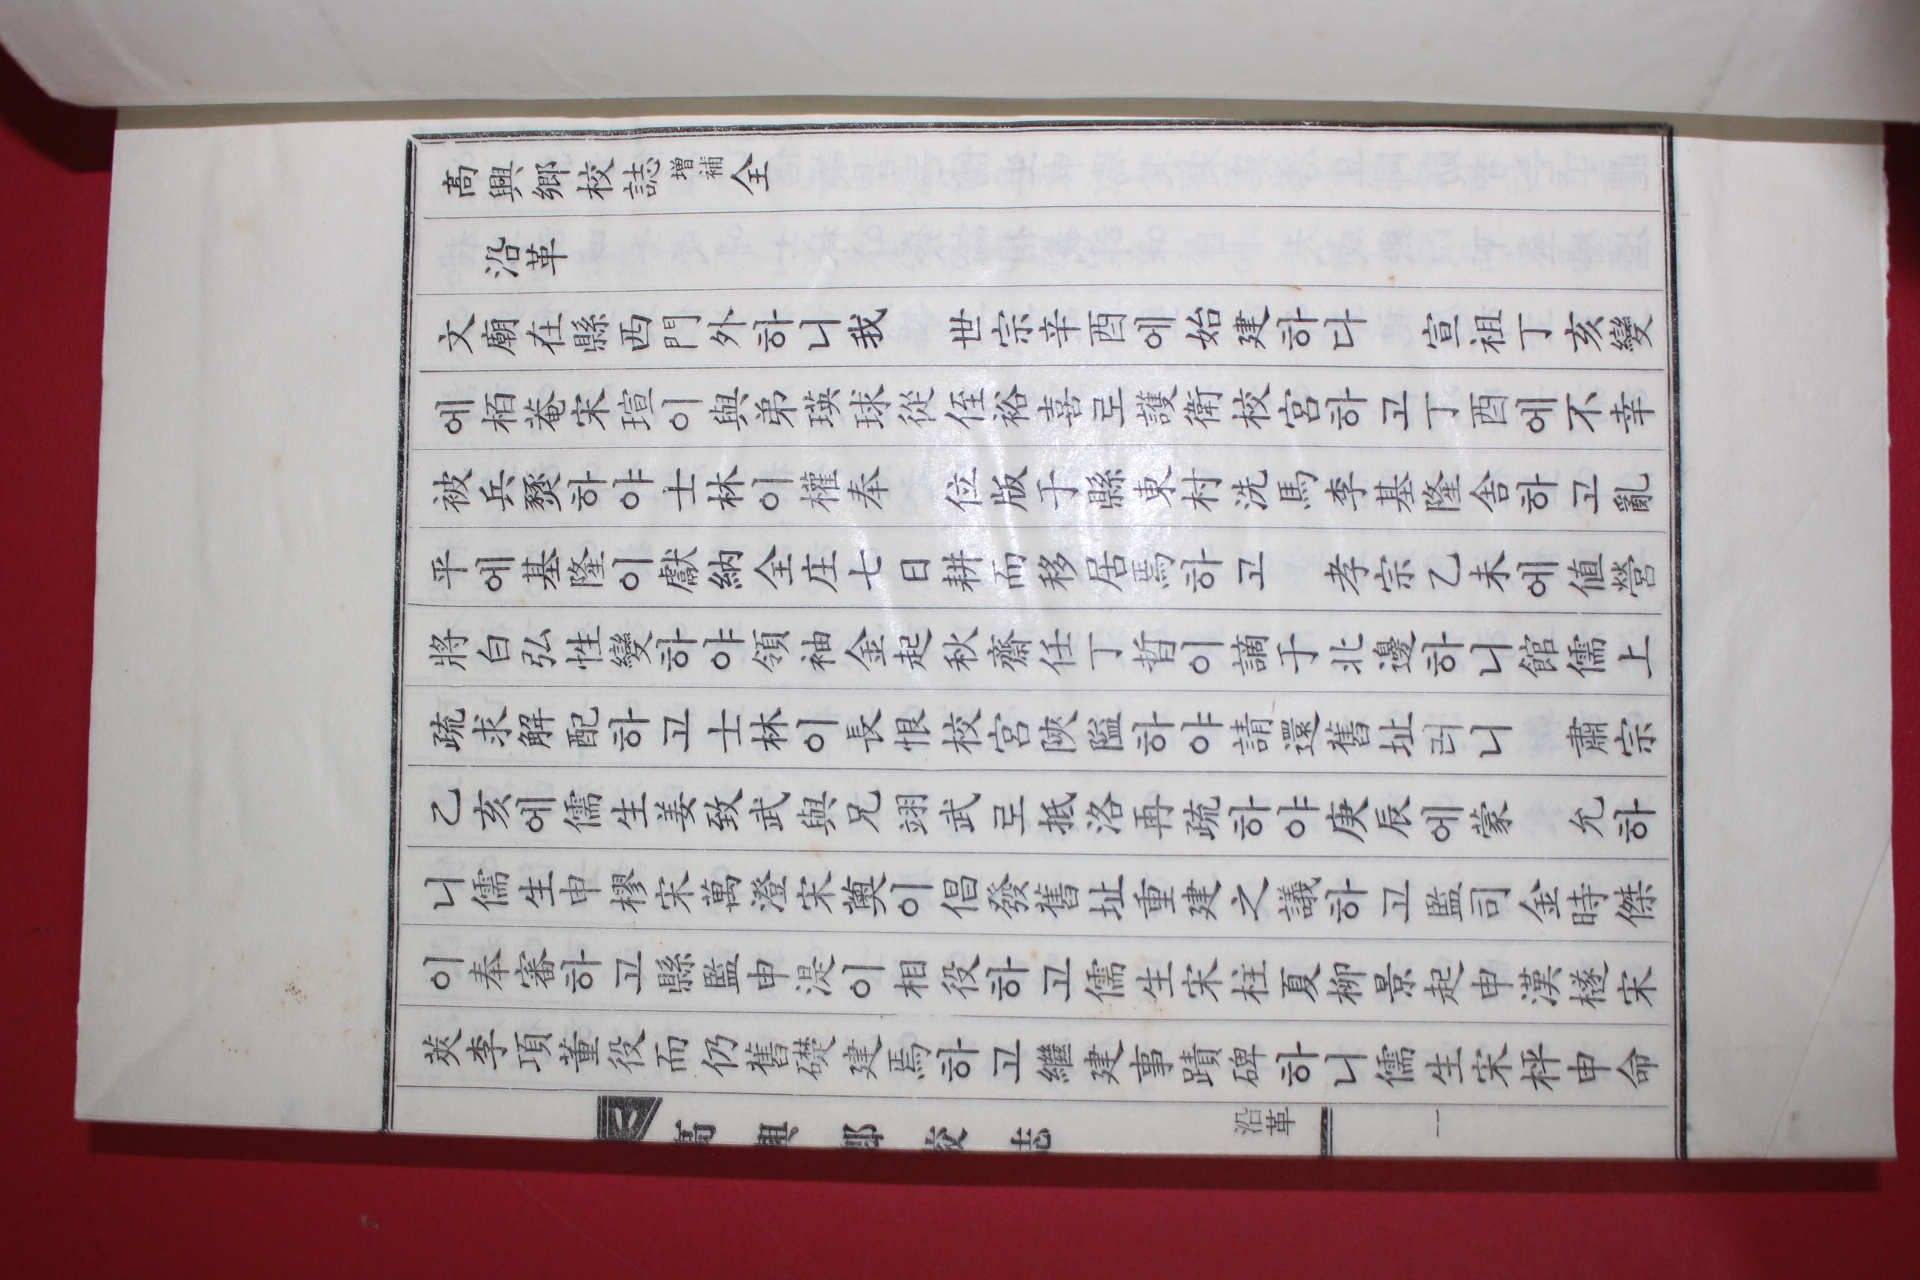 高興鄉校誌增補全
沿革
文廟在縣西門外하니我 世宗辛酉에始建하다 宣祖丁亥變
에栢菴宋瑄이與弟瑛球從侄裕喜로護衛校宮하고丁酉에不幸
被兵燹하야士林이權奉 位版于縣東村洗馬李基隆舍하고亂
平에基隆이獻納全庄七日耕而移居焉하고 孝宗乙未에値營
將白弘性變하야領袖金起秋齋任丁哲이謫于北邊하니館儒上
疏求解配하고士林이長恨校宮陜隘하야請還舊址러니 肅宗
乙亥에儒生姜致武與兄翊武로抵洛再疏하야庚辰에蒙 允하
니儒生申樛宋萬澄宋奠이倡發舊址重建之議하고監司金時傑
이奉審하고縣監申湜이相役하고儒生宋柱夏柳景起申漢檖宋
莢李項董役而仍舊礎建焉하고繼建事蹟碑하니儒生宋枰申命
高興鄉校誌 沿革 一